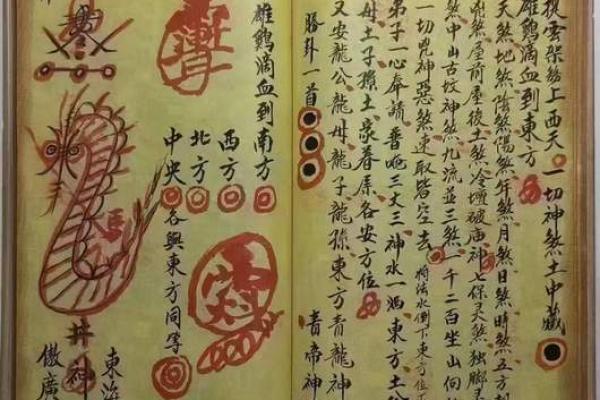 上西天一切神煞土中藏
雄鷄滴血到東方
天煞地煞陰煞陽煞年煞月煞日煞時煞五方
煞屋前屋後土煞冷壇破庙神七保天煞独脚
煞中山古坟神煞九流並三煞一千二百坐山向
一切兇神惡煞速取皆空去 将法水倒下東方位
弟子一心奉請普唵三丈三神水一洒東方土公
母土子孫土家眷属各安方位
又安龍公龍母龍子龍孫東方青龍神
勝卦一首 青帝神
雄鷄滴血到南方
西方
北方
中央 各與東方同写
東海
井神
傲廣